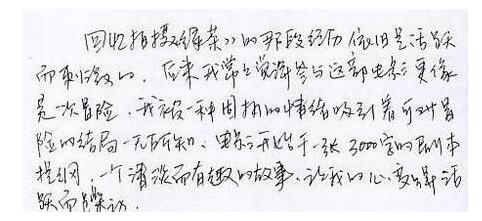 回忆拍摄《绿茶》的那段经历依旧是活跃
而刺激的，后来我常常觉得参与这部电影更像
是一次冒险，我被一种固执的情绪吸引着而对冒
险的结局一无所知。电影开始于一张3000字的剧本
提纲，一个清淡而有趣的故事，让我的心变得活
跃而躁动．